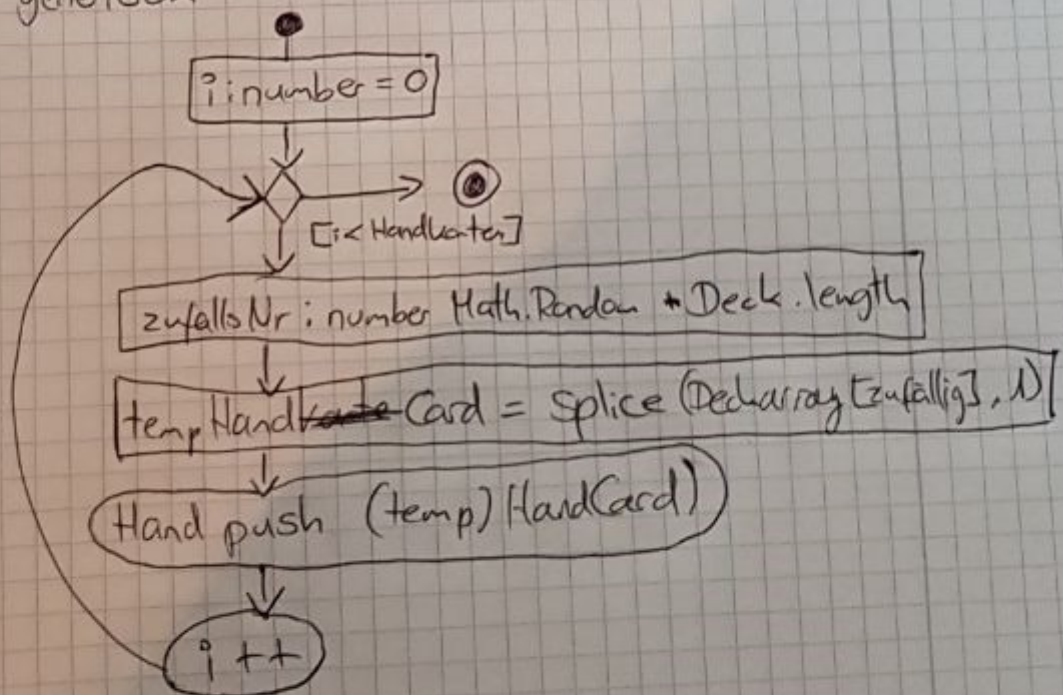 i : number = 0
[i < Handkarten]
zufallsNr : number Math.Random * Deck.length
temp Hand Card = Splice (Deckarray [zufällig], 1)
Hand push (temp) HandCard)
i ++